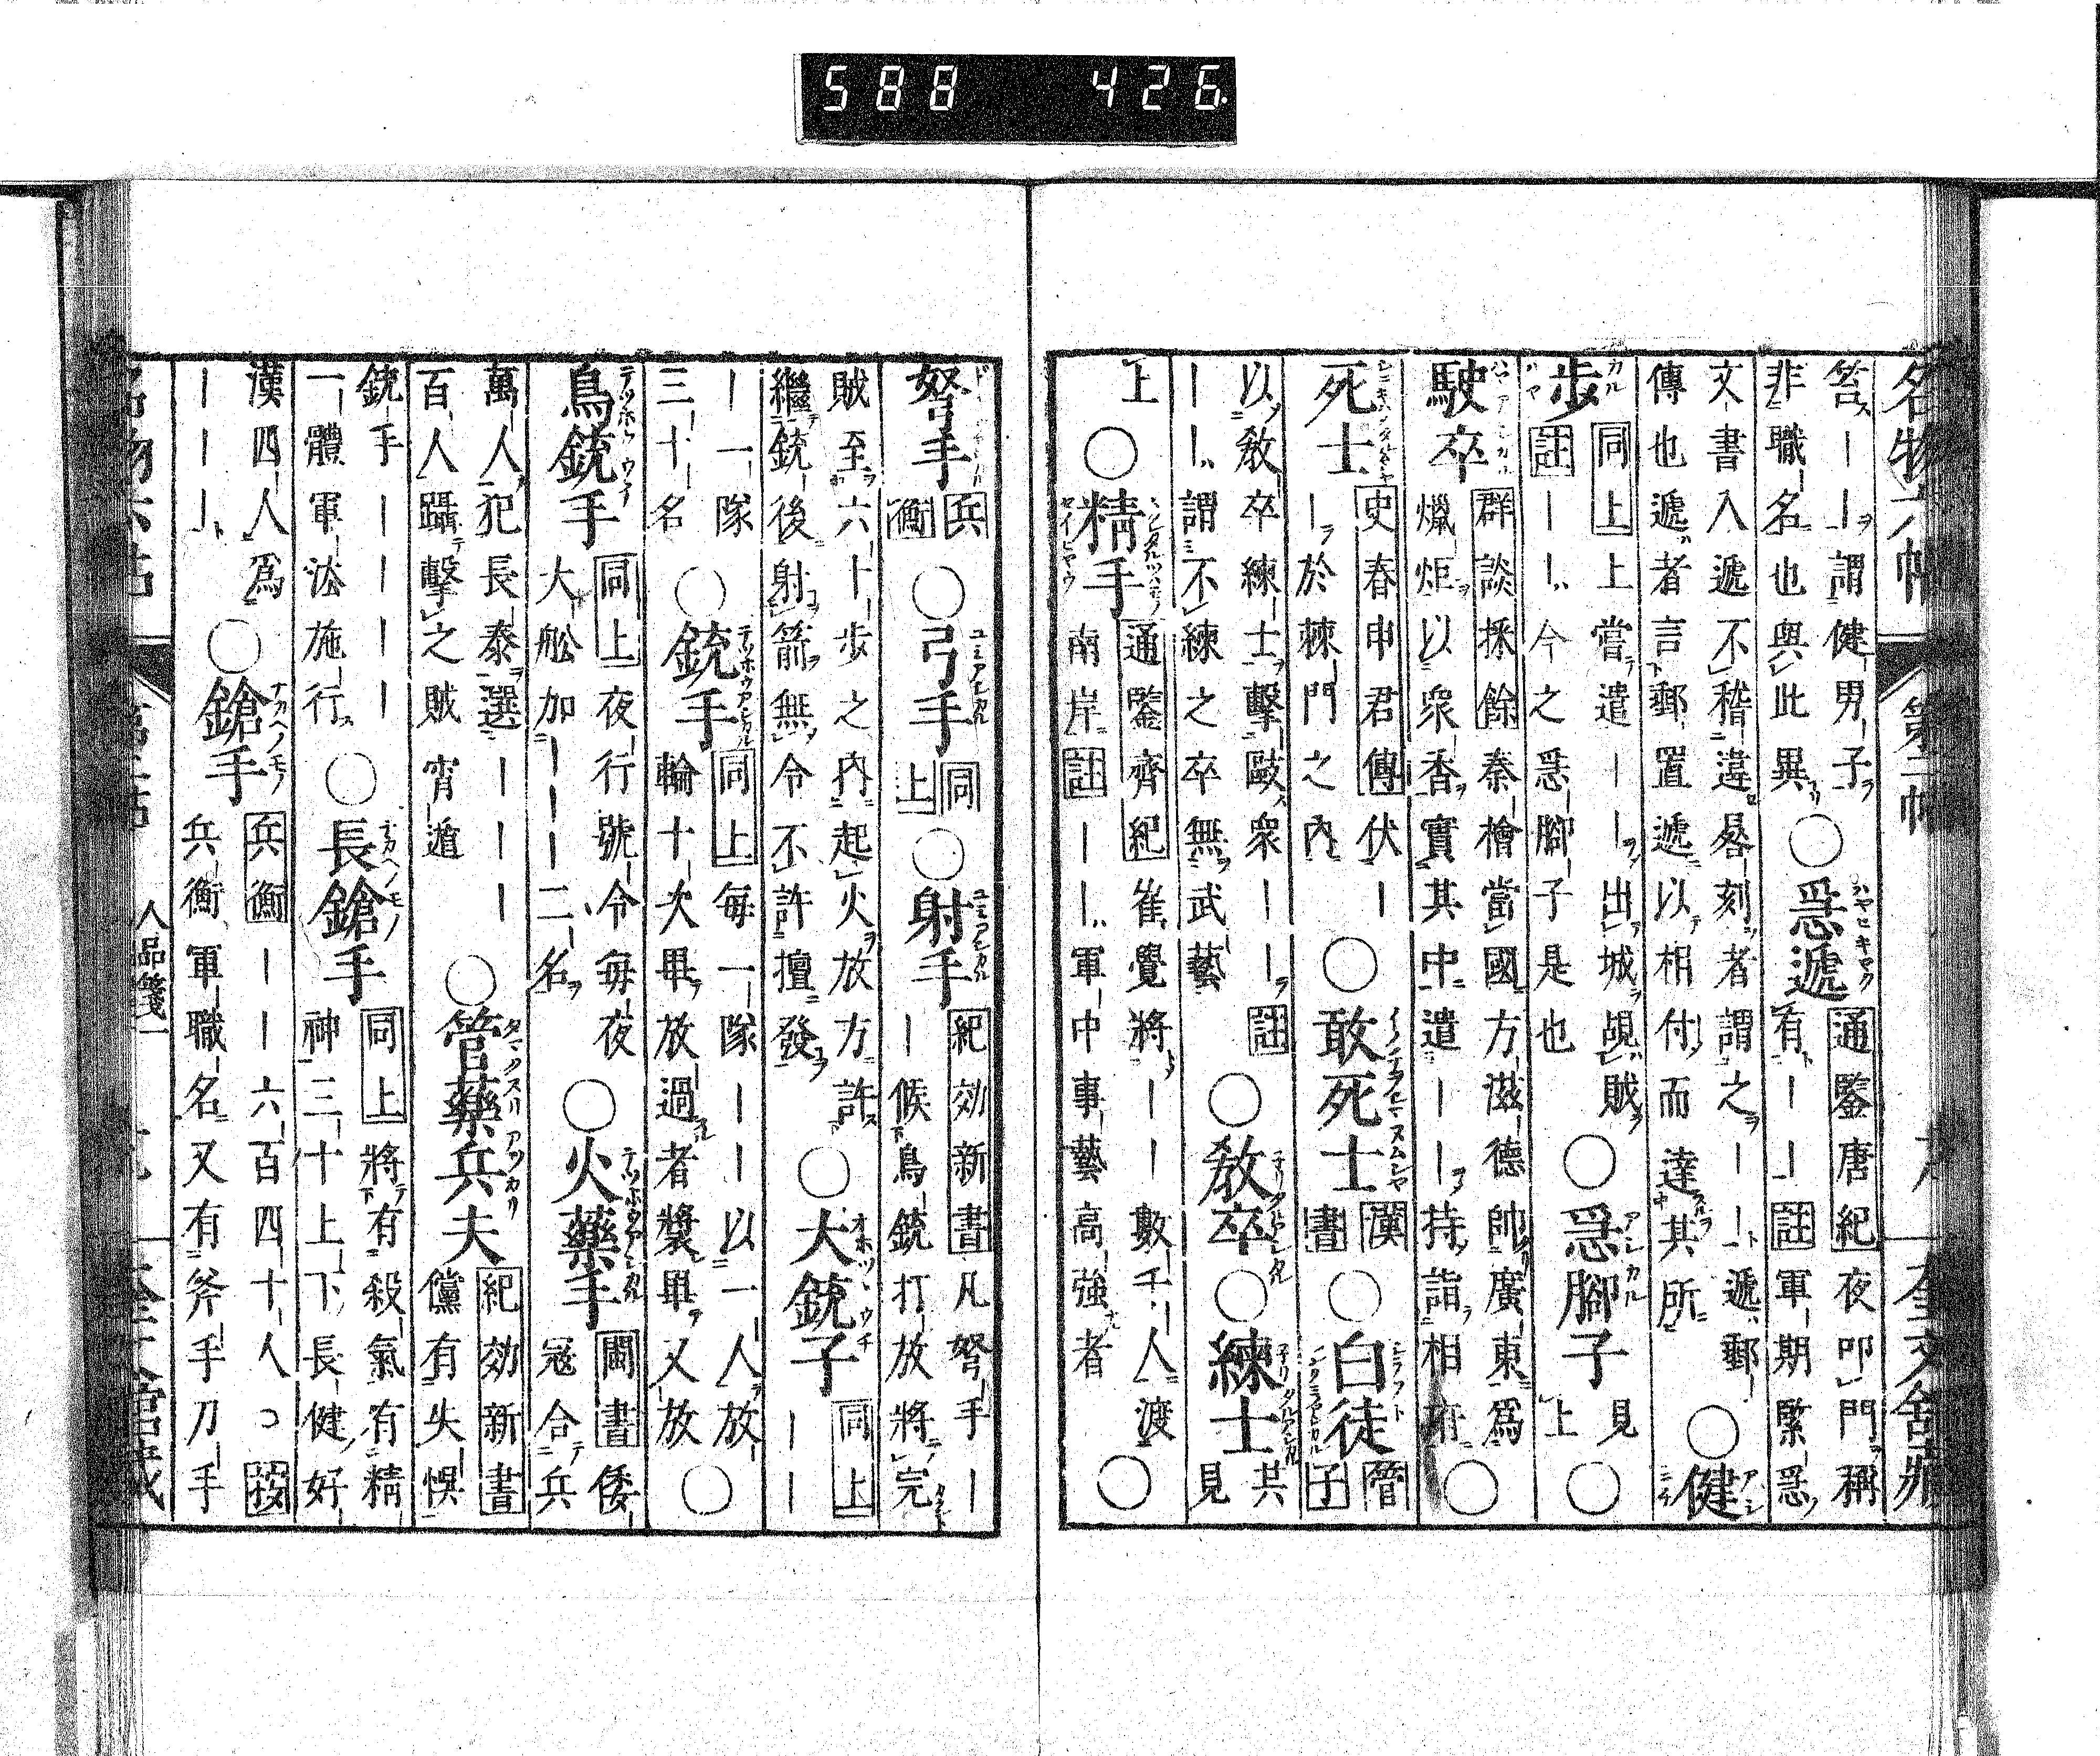 588 426
名物六帖 第二帖
笞｜｜謂健男子
非職名也與此異○急遞通鑒唐紀夜叩門稱
文書入遞不稽違晷刻者謂之｜｜遞郵
有｜｜註軍期緊急
傳也遞者言郵置遞以相付而達其所○健
步同上上嘗遣｜｜出城覘賊○急腳子見
註｜｜今之急腳子是也上○
駛卒群談採餘秦檜當國方滋德帥廣東爲
爥炬以衆香實其中遣｜｜持詣相府○
死士史春申君傳伏｜○敢死士漢書○白徒管子
｜於棘門之內
以教卒練士擊敺衆｜｜註○教卒○練士共
｜｜謂不練之卒無武藝見
上○精手通鑒齊紀崔覺將｜｜數千人渡
南岸註｜｜軍中事藝高強者○
弩手兵衡○弓手同上○射手紀効新書凡弩手｜
｜候鳥銃打放將完
賊至六十步之內起火放方許○大銃子同上
繼銃後射箭無令不許擅發｜｜
｜一隊○銃手同上每一隊｜｜以一人放
三十名輪十次畢放過者獎畢又放○
鳥銃手同上夜行號令每夜○火藥手閩書倭
大舩加｜｜｜二名寇合兵
萬人犯長泰選｜｜｜○管藥兵夫紀効新書
百人躡擊之賊宵遁儻有失悞
銃手｜｜｜｜○長鎗手同上將有殺氣有精
一體軍法施行神三十上下長健好
漢四人爲○鎗手兵衡｜｜六百四十人○按
｜｜｜兵衡軍職名又有斧手刀手
人品箋一